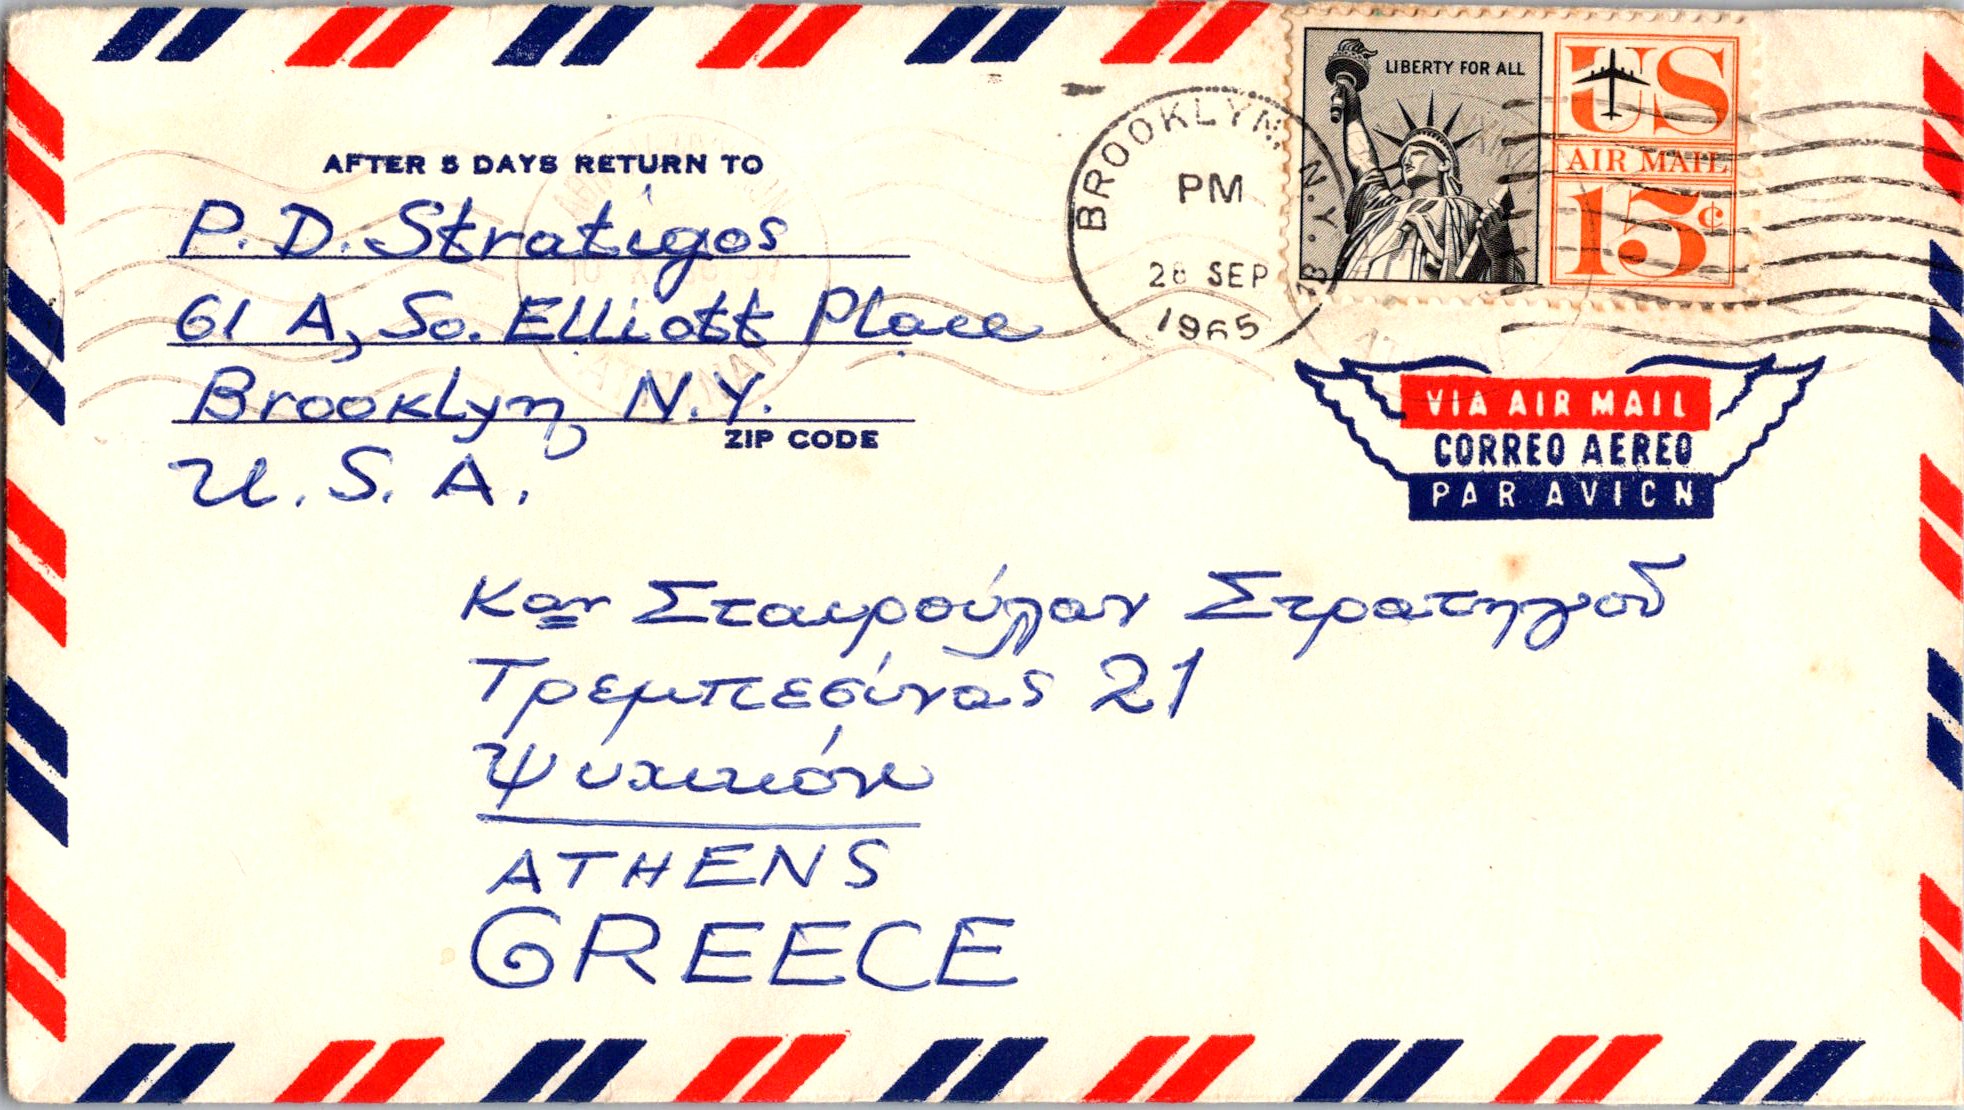 AFTER 5 DAYS RETURN TO
P. D. Stratigos
61 A, So. Elliott Place
Brooklyn N.Y.
ZIP CODE
U. S. A.
BROOKLYN, N.Y.
PM
SEP
1965
LIBERTY FOR ALL
US
AIR MAIL
15¢
VIA AIR MAIL
CORREO AEREO
PAR AVION
Καν Σταυρούλαν Στρατηγοῦ
Τρεμπεσίνας 21
Ψυχικόν
ATHENS
GREECE